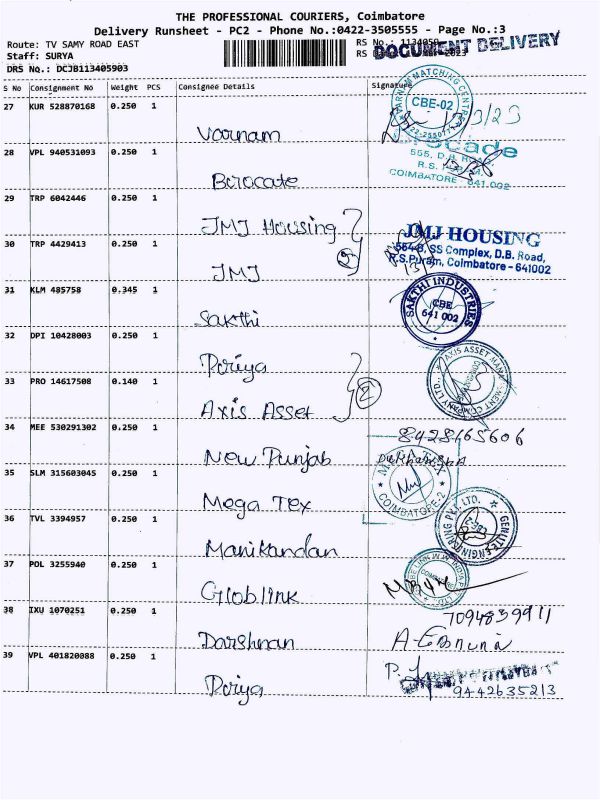 THE PROFESSIONAL COURIERS, Coimbatore
Delivery Runsheet - PC2 - Phone No.:0422-3505555 - Page No.:3
Route: TV SAMY ROAD EAST
RS No.: 1134059
DOCUMENT DELIVERY
Staff: SURYA
RS
2023
DRS No.: DCJB113405903
S No Consignment No Weight PCS Consignee Details Signature
27 KUR 528870168 0.250 1
Varnam
VARNAM MATCHING CENTRE
CBE-02
28 VPL 940531093 0.250 1
Borocate
555, D.B. ROAD,
R.S. PURAM,
COIMBATORE - 641 002
29 TRP 6042446 0.250 1
JMJ Housing
30 TRP 4429413 0.250 1
JMJ
JMJ HOUSING
SS Complex, D.B. Road,
R.S.Puram, Coimbatore - 641002
31 KLM 485758 0.345 1
Sakthi
SAKTHI INDUSTRIES
CBE
641 002
32 DPI 10428003 0.250 1
Poriya
33 PRO 14617508 0.140 1
Axis Asset
2
AXIS ASSET MANAGEMENT COMPANY LTD.
34 MEE 530291302 0.250 1
New Punjab
8428165606
35 SLM 315603045 0.250 1
Mega Tex
MEGA TEX
COIMBATORE-2
36 TVL 3394957 0.250 1
Manikandan
ENGINEERING PVT. LTD.
37 POL 3255940 0.250 1
Globlink
38 IXU 1070251 0.250 1
Darshnan
7094839911
39 VPL 401820088 0.250 1
Poriya
9442635213